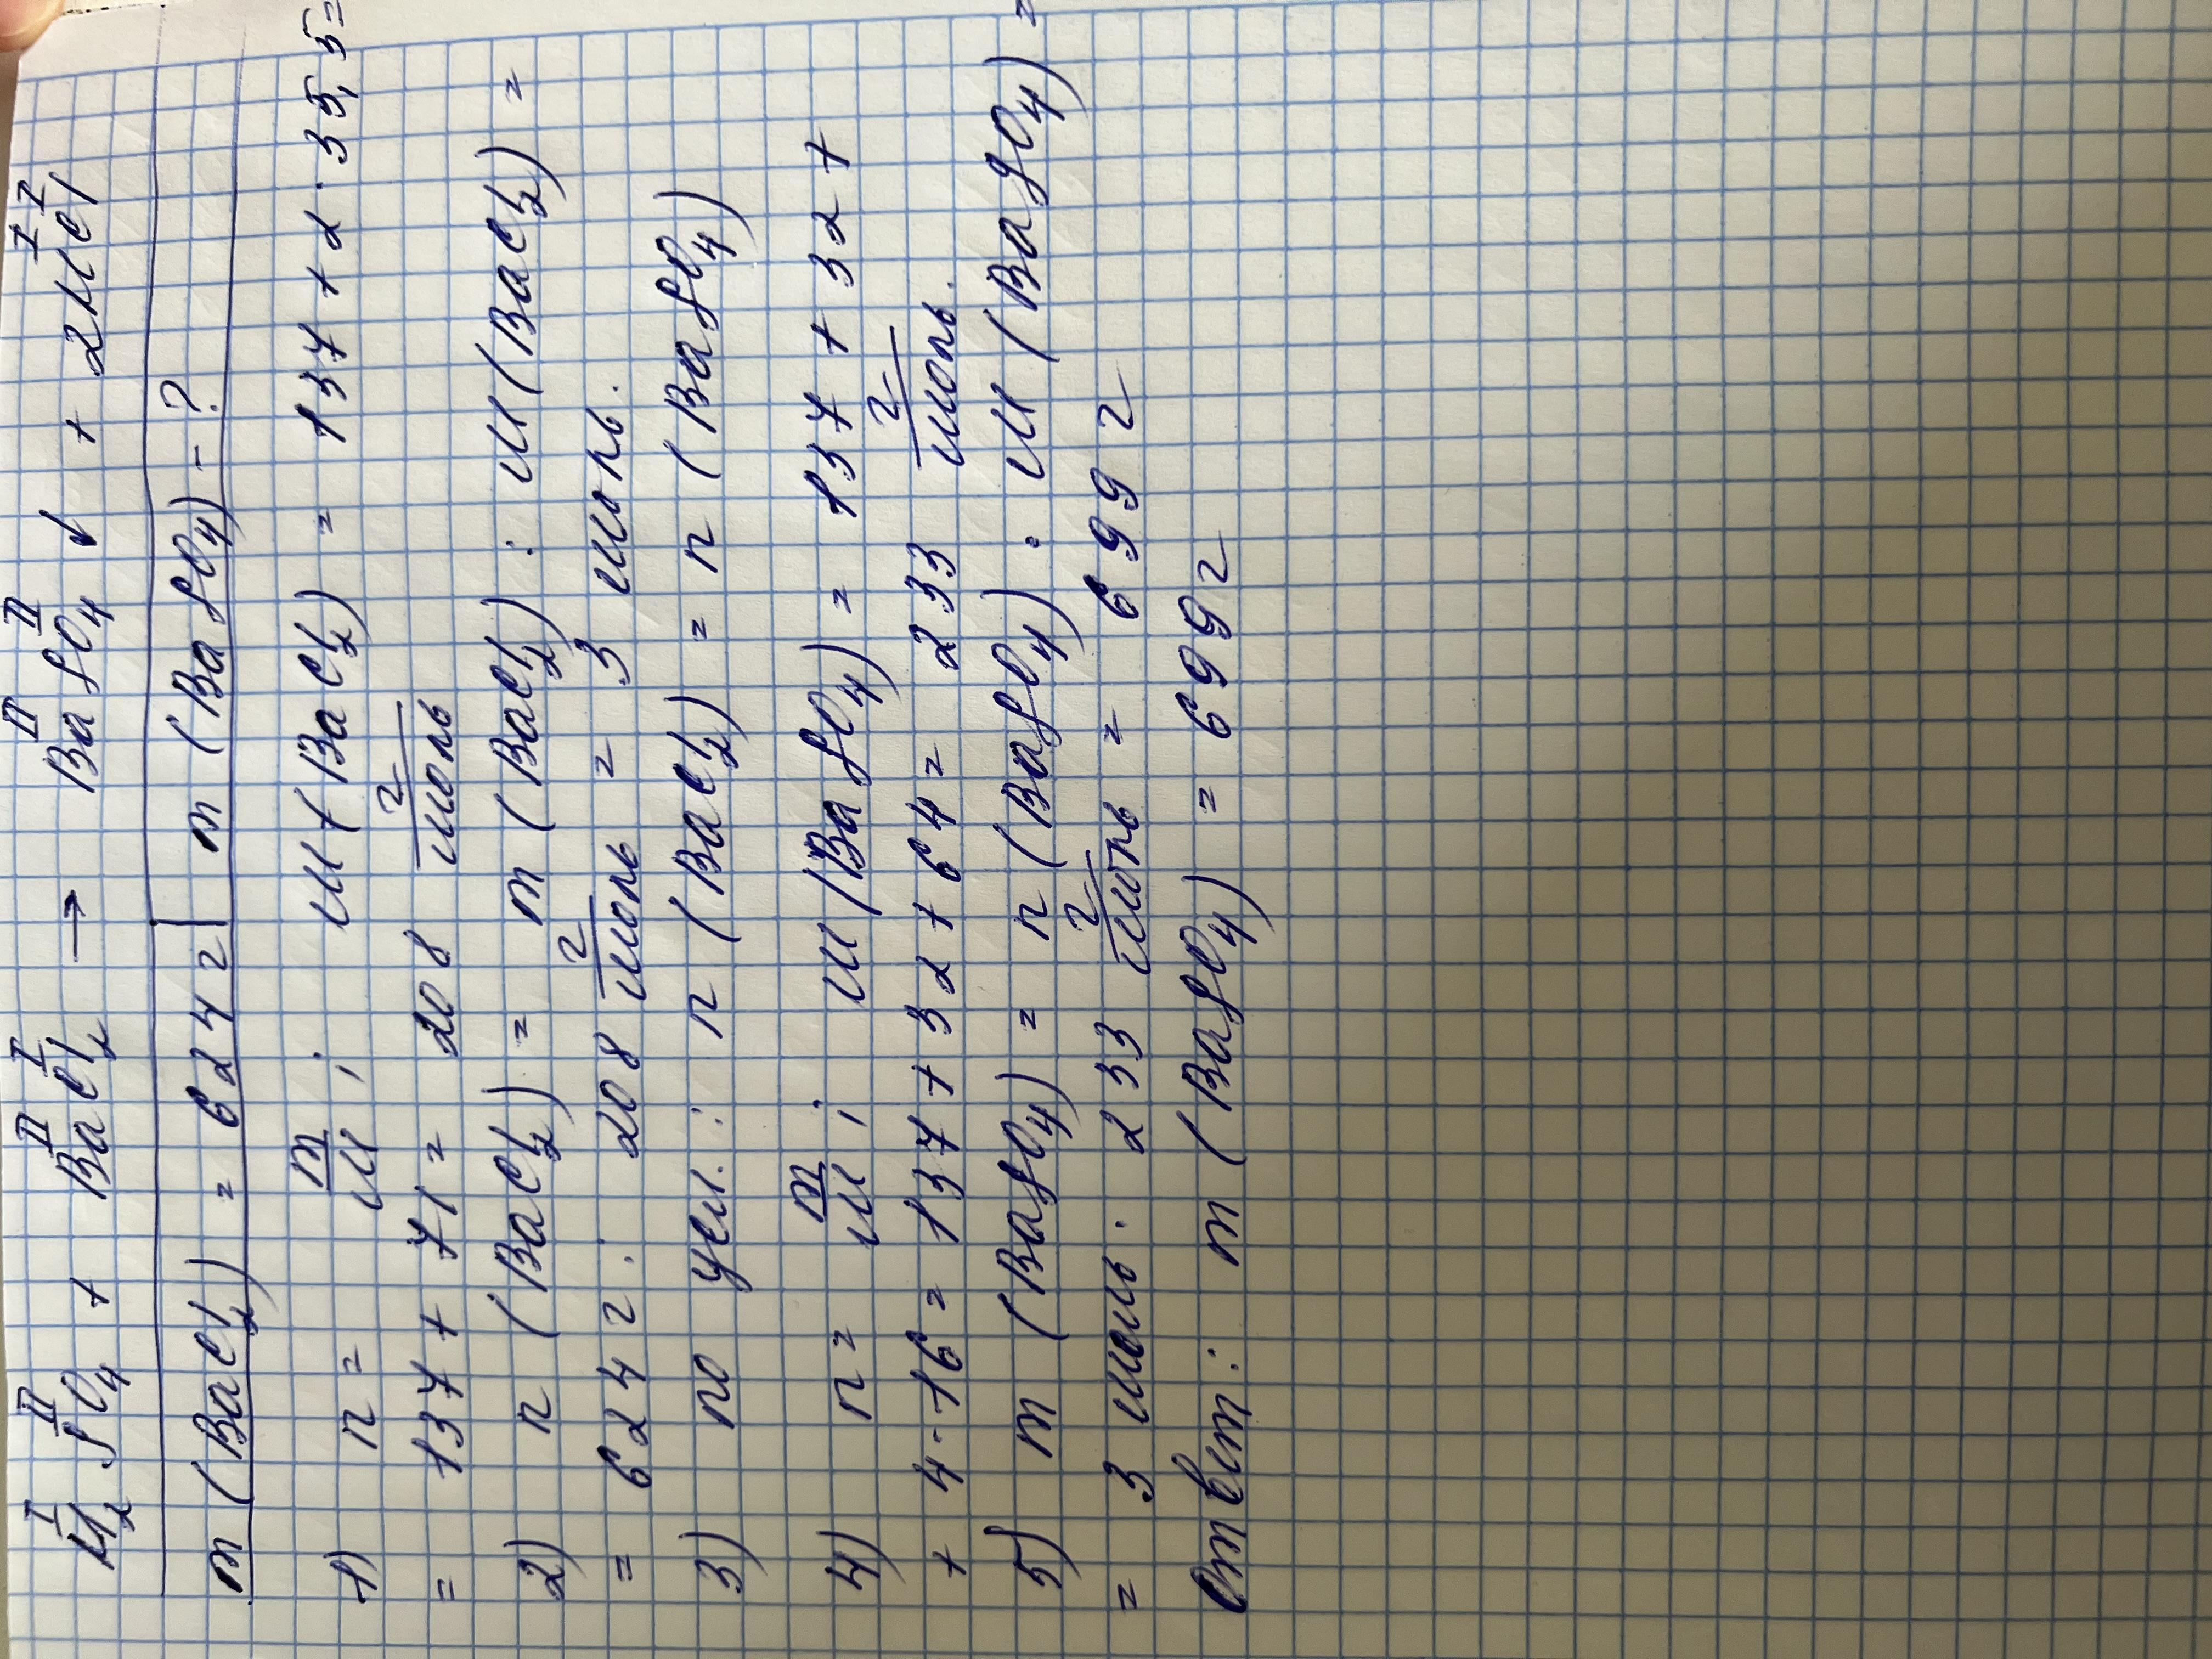 I II II I II II I I
H₂SO₄ + BaCl₂ → BaSO₄ ↓ + 2HCl
m (BaCl₂) = 624 г | m (BaSO₄) - ?
1) n = m/M ; M (BaCl₂) = 137 + 2 · 35,5 =
= 137 + 71 = 208 г/моль
2) n (BaCl₂) = m (BaCl₂) : M (BaCl₂) =
= 624 г : 208 г/моль = 3 моль.
3) по усл. : n (BaCl₂) = n (BaSO₄)
4) n = m/M ; M (BaSO₄) = 137 + 32 +
+ 4 · 16 = 137 + 32 + 64 = 233 г/моль.
5) m (BaSO₄) = n (BaSO₄) · M (BaSO₄) =
= 3 моль · 233 г/моль = 699 г
Ответ: m (BaSO₄) = 699 г